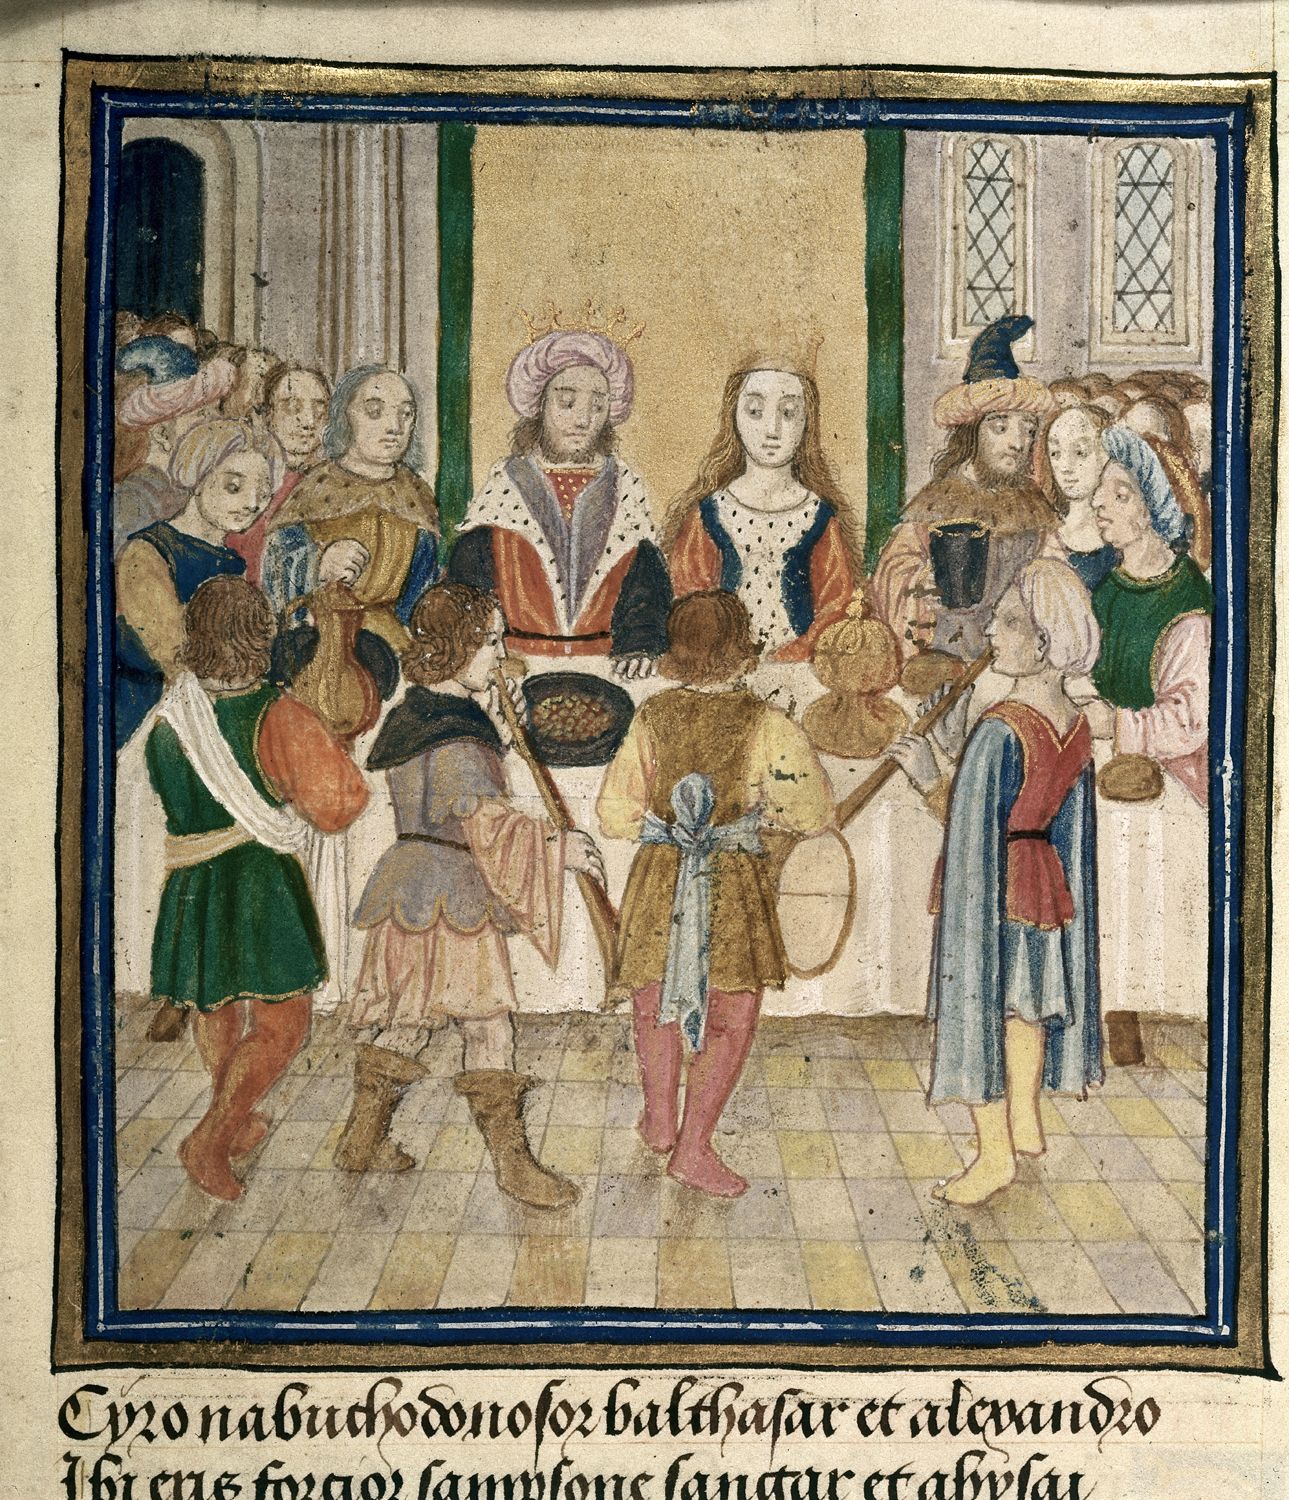 Cyro nabuchodonosor balthasar et alexandro
Ibi eris forcior sampsone sangar et abysai